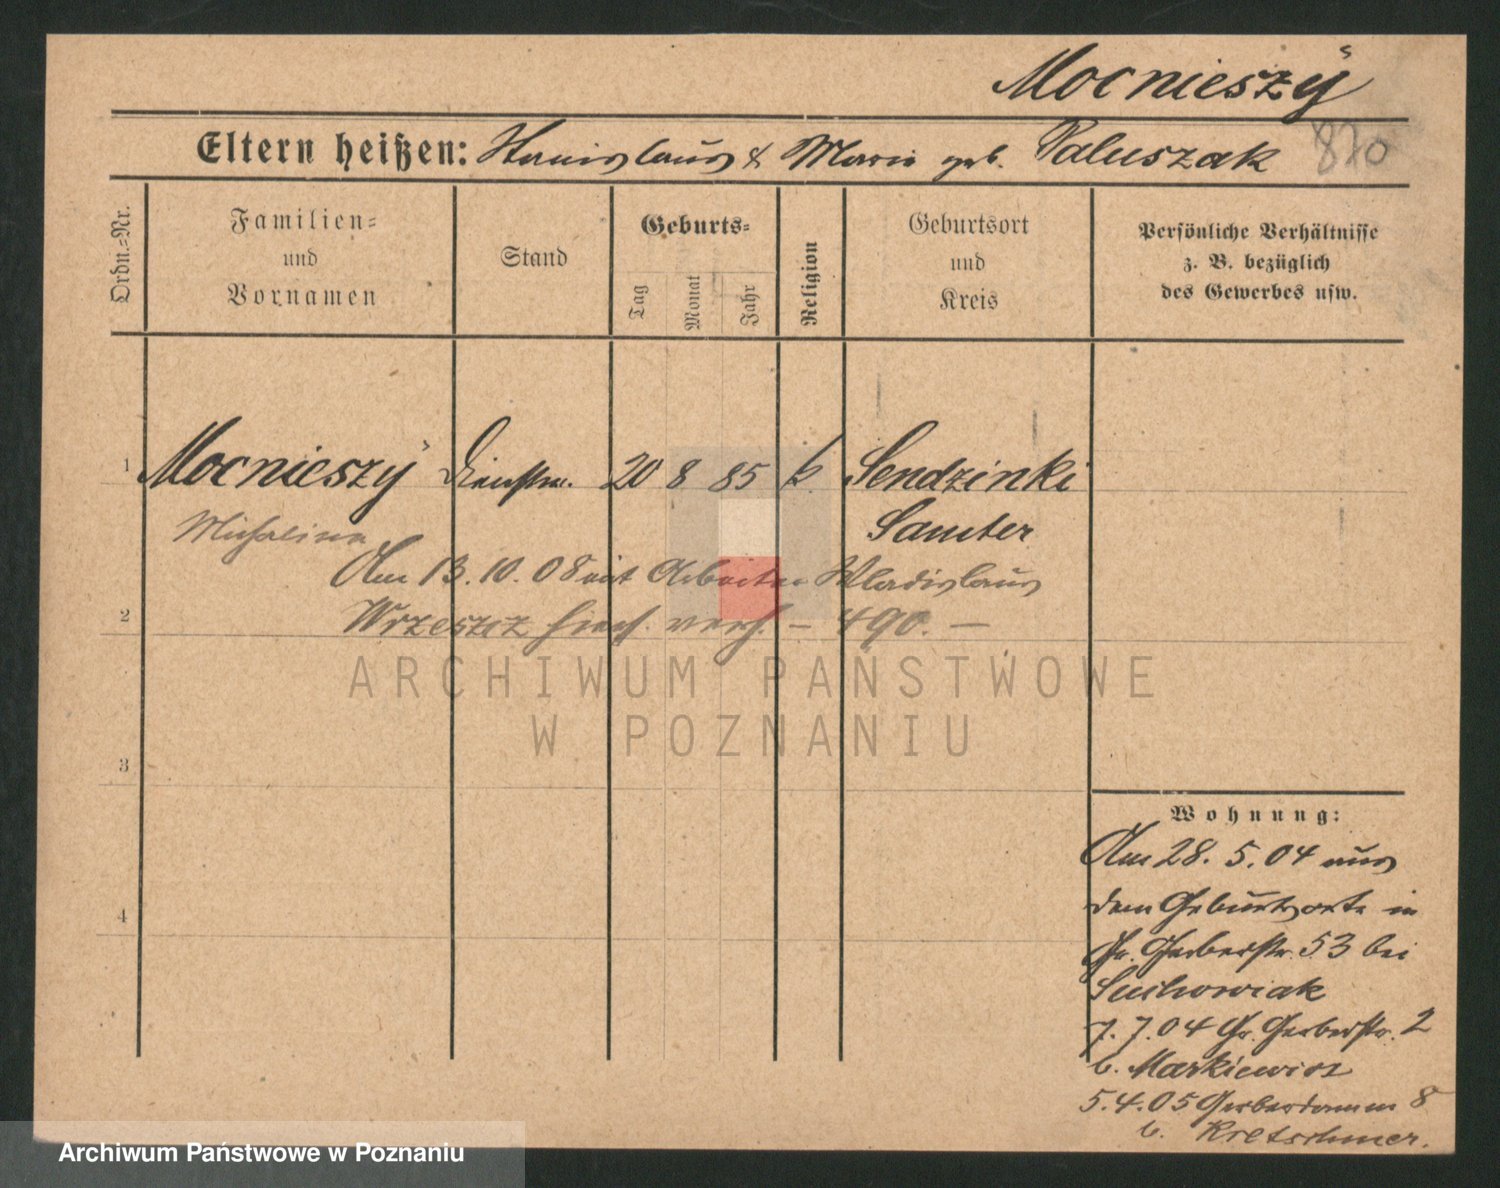 Mocnieszÿ
Eltern heißen: Stanislaus & Marie geb. Paluszak 870
Ordn.=Nr.
Familien=
und
Vornamen
Stand
Geburts=
Tag
Monat
Jahr
Religion
Geburtsort
und
Kreis
Persönliche Verhältnisse
z. B. bezüglich
des Gewerbes usw.
1 Mocnieszÿ Dienstm. 20 8 85 k Sendzinki
Michalina Samter
Am 13.10.08 mit Arbeiter Wladislaus
2 Wrzeszcz hier verh. – 490. –
ARCHIWUM PAŃSTWOWE
W POZNANIU
3
4
Wohnung:
Am 28. 5. 04 aus
dem Geburtsorte in
Gr. Gerberstr. 53 bei
Suchowiak
7. 7. 04 Gr. Gerberstr. 2
b. Markiewicz
5. 4. 05 Gerberdamm 8
b. Kretschmer.
Archiwum Państwowe w Poznaniu